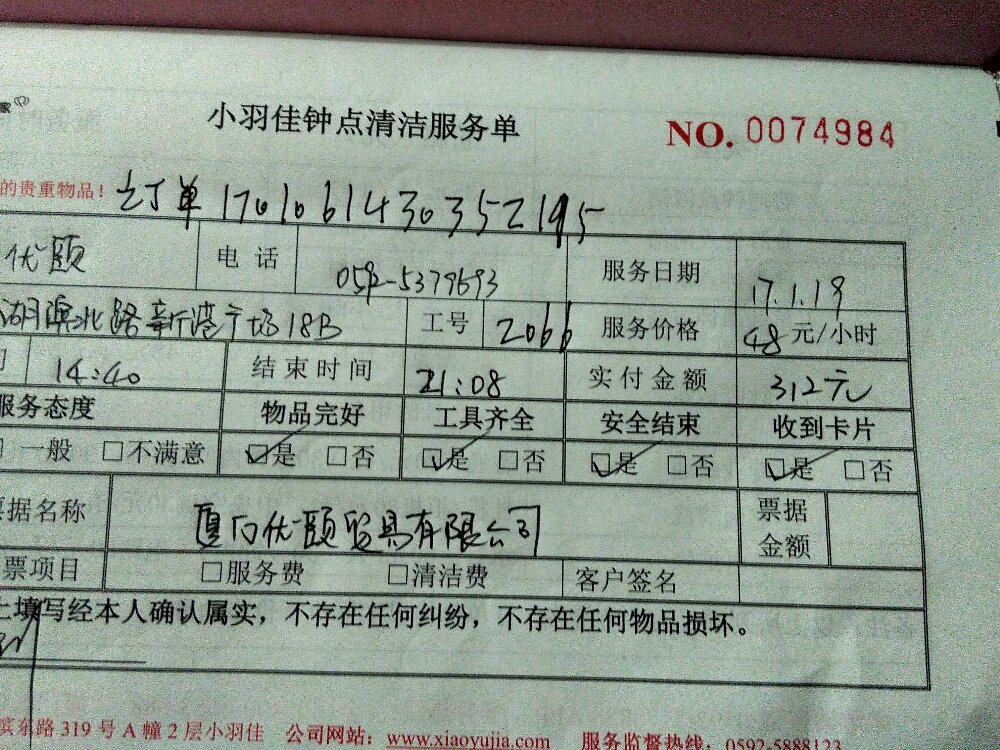 家
小羽佳钟点清洁服务单 NO. 0074984
的贵重物品! 订单 1701061430352195
优颐 电话 0592-5379693 服务日期 17.1.19
湖滨北路新港广场18B 工号 2066 服务价格 48 元/小时
14:40 结束时间 21:08 实付金额 312元
服务态度 物品完好 工具齐全 安全结束 收到卡片
一般 □不满意 □是 □否 □是 □否 □是 □否 □是 □否
票据名称 厦门优颐贸易有限公司 票据金额
票项目 □服务费 □清洁费 客户签名
上填写经本人确认属实，不存在任何纠纷，不存在任何物品损坏。
滨东路 319 号 A 幢 2 层小羽佳 公司网站：www.xiaoyujia.com 服务监督热线：0592-5888123